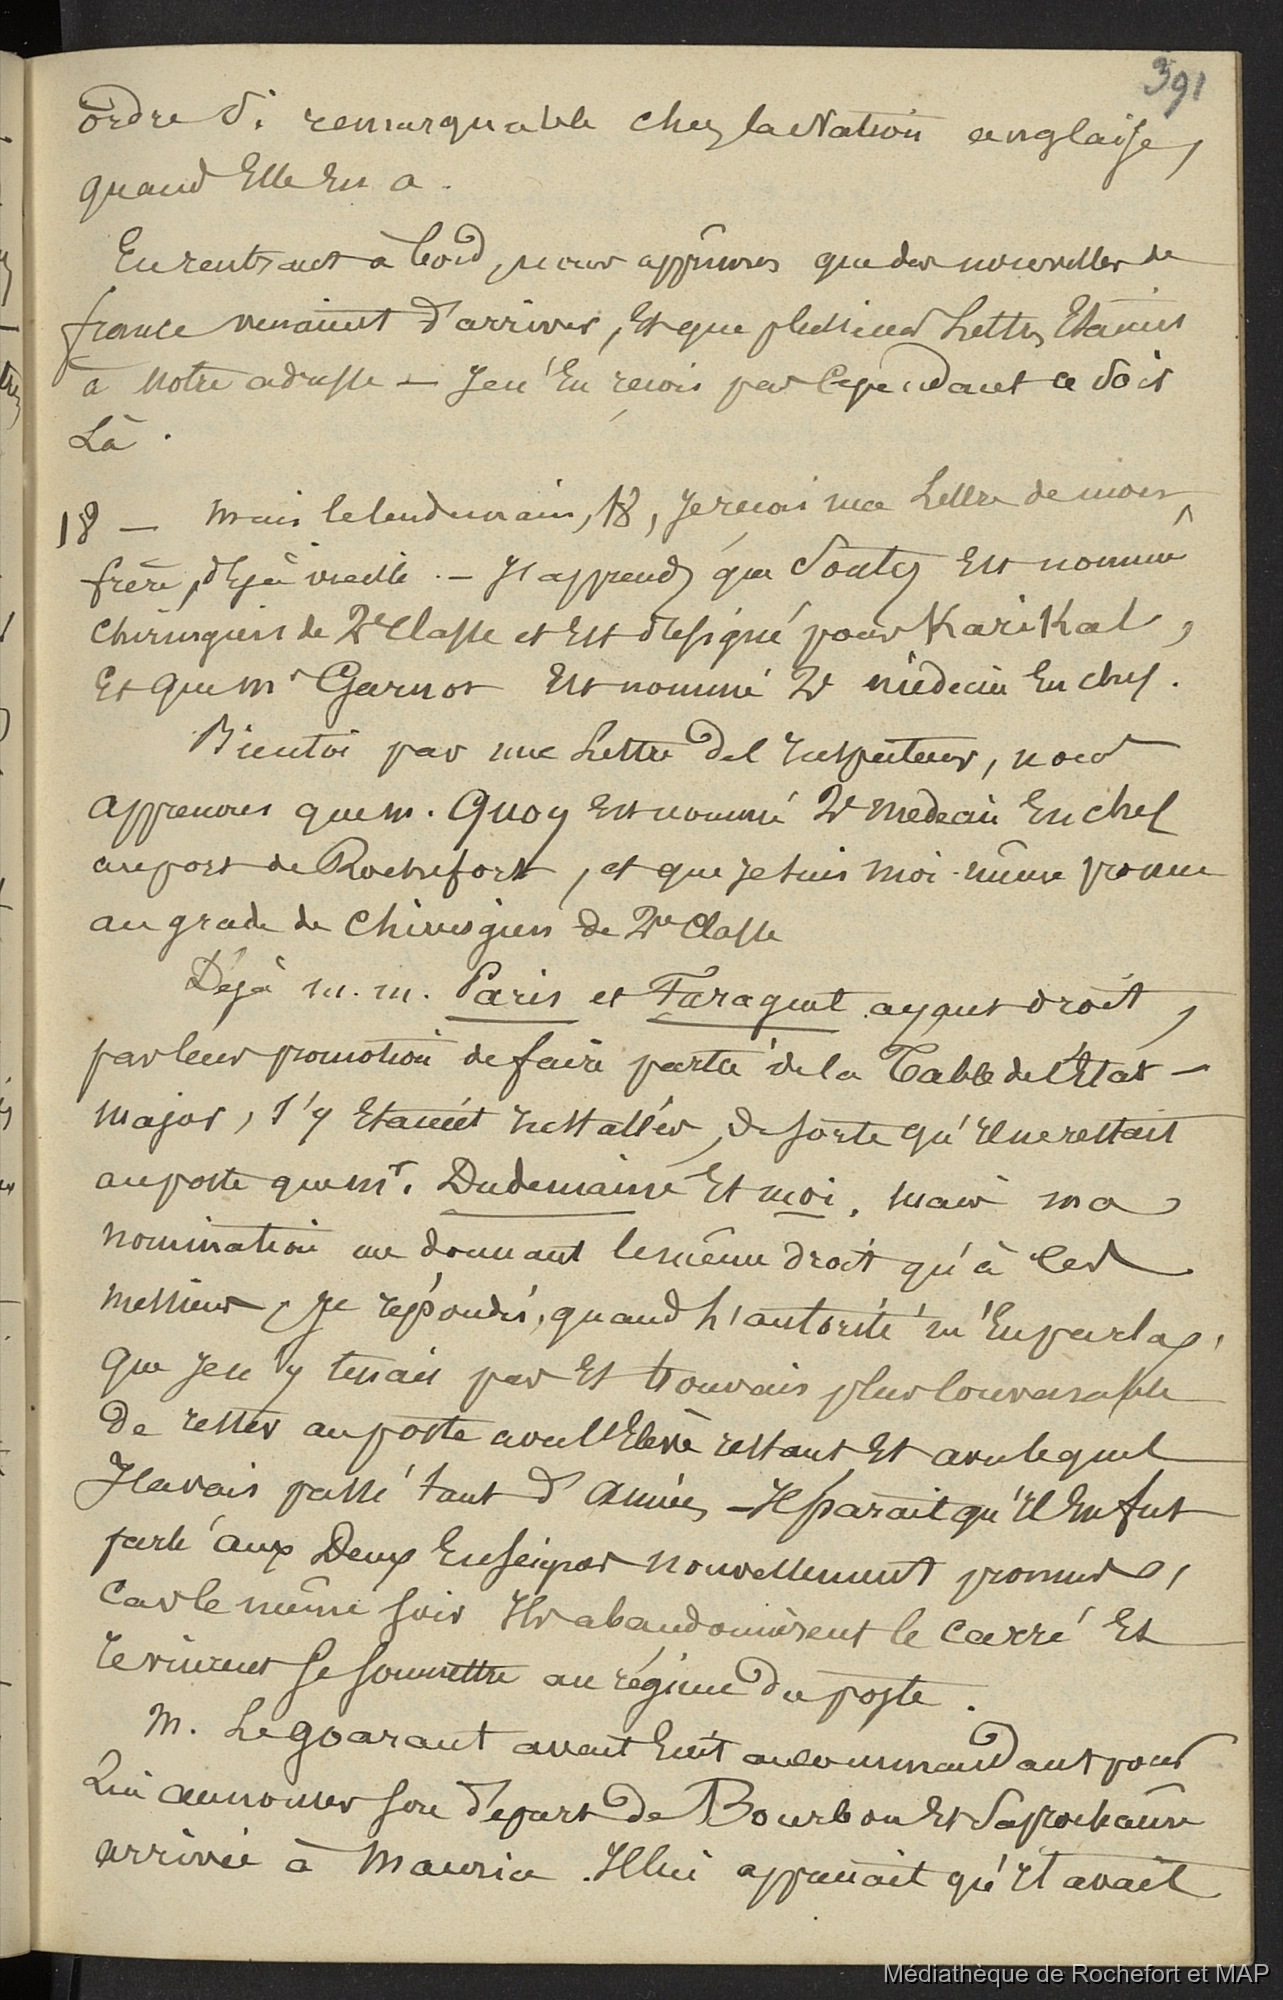 391
ordre si remarquable chez la Nation anglaise,
quand Elle En a.
En rentrant à bord, nous apprimes que des nouvelles de
france venaient d'arriver, Et que plusieurs Lettres Etaient
à notre adresse — Je n'En reçois pas Cependant ce soir
Là.
18 — Mais le lendemain, 18, Je reçois une Lettre de mon
frère, déjà vieille. — J'apprends que Souty Est nommé
Chirurgien de 2e Classe et Est désigné pour Karikal,
Et que Mr Garnot Est nommé 2e médecin En chef.
Bientôt par une Lettre de l'Inspecteur, nous
apprenons que M. Quoy Est nommé 2e médecin En chef
au port de Rochefort, et que je suis moi-même promu
au grade de Chirurgien de 2me Classe
Déjà M.M. Paris et Faraguet ayant droit,
par leur promotion de faire partie de la Table de l'Etat-
major, s'y Etaient installés, de sorte qu'Il ne restait
au poste que Mr. Dudemaine Et moi. Mais ma
nomination me donnant le même droit qu'à Ces
Messieurs, Je répondis, quand L'autorité m'En parla,
que Je n'y tenais pas Et trouvais plus convenable
De rester au poste avec l'Elève restant Et avec lequel
J'avais passé tant d'années — Il parait qu'Il En fut
parlé aux Deux Enseignes nouvellement promus,
Car le même soir Ils abandonnèrent le Carré Et
revinrent se soumettre au régime du poste.
M. Legoarant avait Ecrit au commandant pour
Lui annoncer son départ de Bourbon Et sa prochaine
arrivée à Maurice. Il lui apprenait qu'Il avait
Médiathèque de Rochefort et MAP